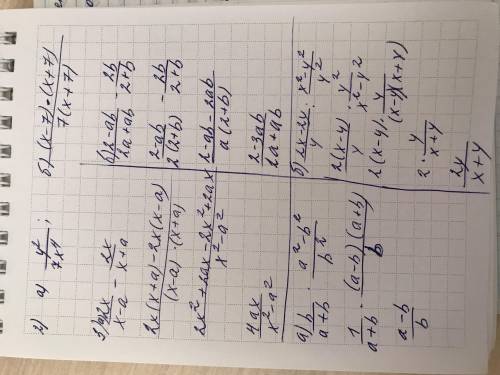 2) а) y²/7x⁴ ;
б) (x-7)·(x+7)/7(x+7)
3) а) 2x/x-a - 2x/x+a
2x(x+a)-2x(x-a)/(x-a)·(x+a)
2x²+2ax-2x²+2ax/x²-a²
4ax/x²-a²
б) 2-ab/2a+ab - 2b/2+b
2-ab/2(2+b) - 2b/2+b
2-ab-2ab/a(2+b)
2-3ab/2a+ab
а) b/a+b · a²-b²/b²
1/a+b · (a-b)(a+b)/b
a-b/b
б) 2x-2y/y : x²-y²/y²
2(x-y)/y · y²/x²-y²
2(x-y) · y/(x-y)(x+y)
2 · y/x+y
2y/x+y